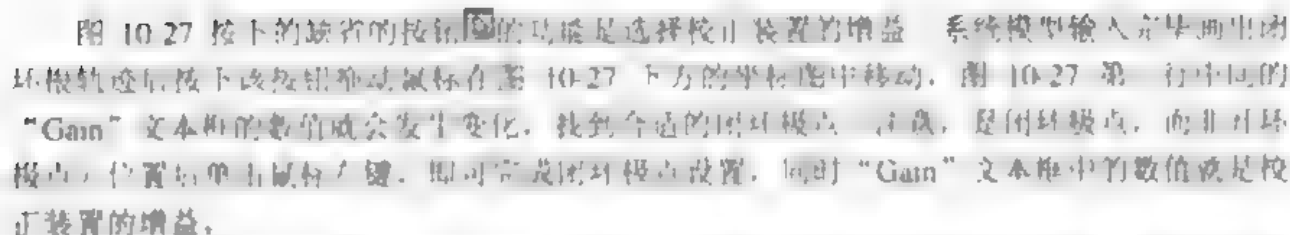 图 10-27 按下的缺省的按钮的功能是选择校正装置的增益 系统模型输入完毕画出闭
环根轨迹后按下该按钮拖动鼠标在图 10-27 下方的坐标图中移动，图 10-27 第 行中间的
“Gain”文本框的数值就会发生变化，找到合适的闭环极点 注意，是闭环极点，而非开环
极点）位置后单击鼠标左键，即可完成闭环极点设置，同时“Gain”文本框中的数值就是校
正装置的增益。